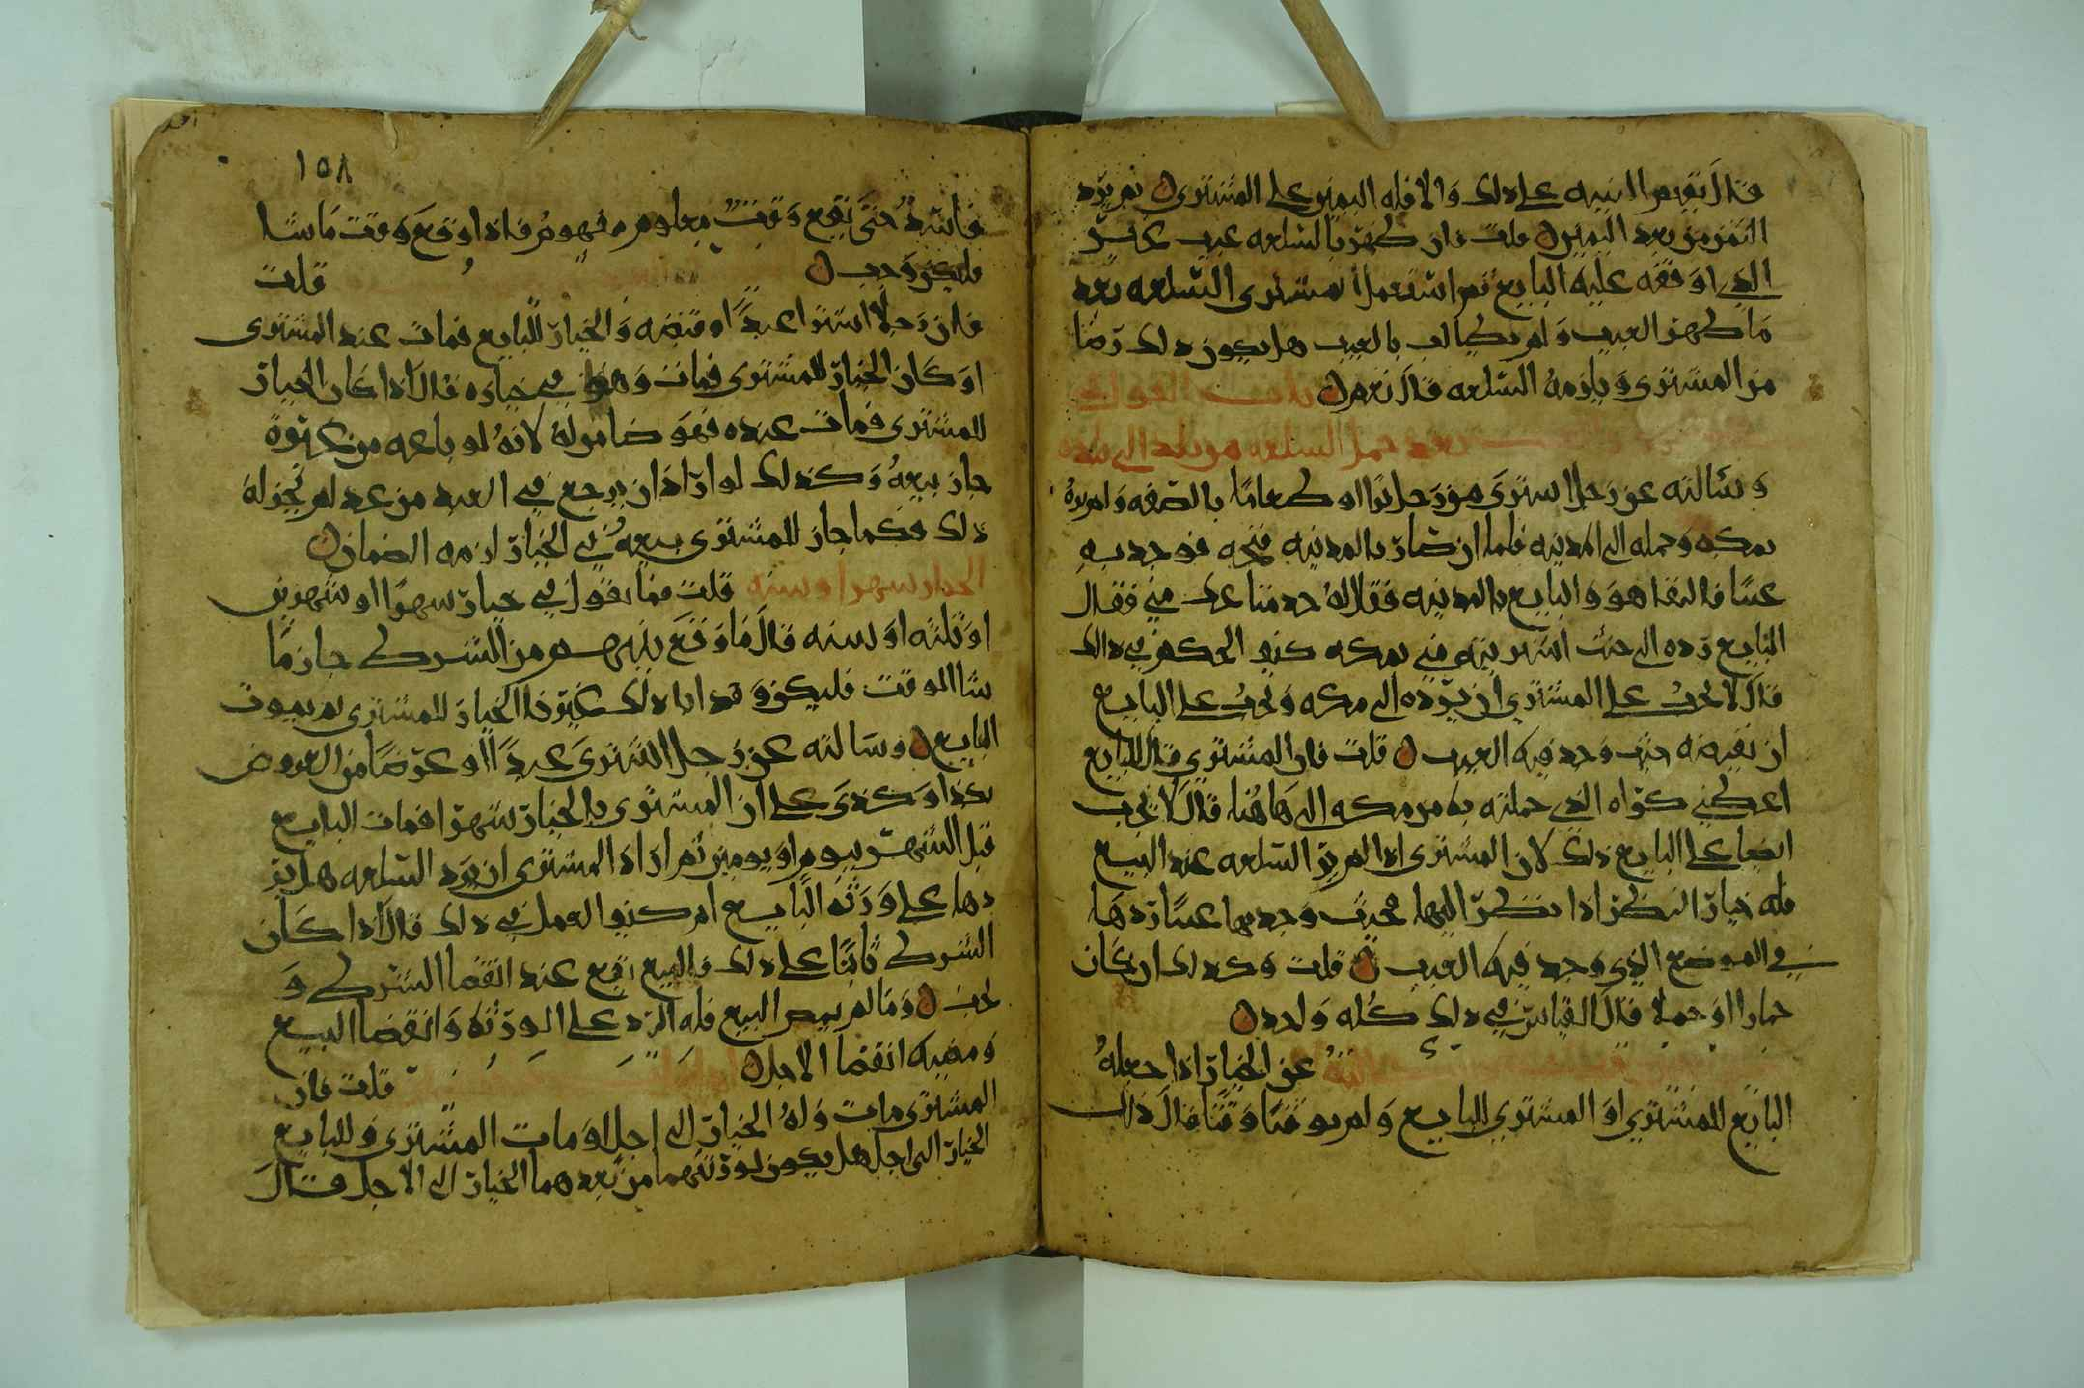 قال يقيم البينه على ذلك والا فله اليمين على المشتري ن ثم يرد
الثمن من بعد اليمين ن قلت فان ظهر بالسلعه عيب غير
الذي اوقفه عليه البايع ثم استعمل المشتري السلعه بعد
ما ظهر العيب ولم يطالب بالعيب هل يكون ذلك رضا
من المشتري ويلزمه السلعه قال نعم ن باب القول
بعد حمل السلعه من بلد الى بلده
وسألته عن رجل اشترى من رجل برا او طعاما بالصفه ولم يره
بمكه وحمله الى المدينه فلما ان صار بالمدينه فتحه فوجد به
عيبا فالتقا هو والبايع بالمدينه فقال له خذ متاعك مني فقال
البايع رده الى حيث اشتريته مني بمكه كيف الحكم في ذالك
قال لا يجب على المشتري ان يرده الى مكه ويجب على البايع
ان يقبضه حيث وجد فيه العيب ن قلت فان المشتري قال للبايع
اعطني كراه الذي حملته به من مكه الى هاهنا قال لا يجب
ايضا على البايع ذلك لان المشتري اذا لم ير السلعه عند البيع
فله خيار النظر اذا نظر اليها فحيث وجد بها عيبا ردها
في الموضع الذي وجد فيه العيب ن قلت وكذلك ان كان
حمارا او جملا قال القياس في ذلك كله واحد ن
عن الخيار اذا جعله
البايع للمشتري او المشتري للبايع ولم يوقتا وقتا قال ذلك
١٥٨
فاسد حتى يقع وقت معلوم مفهوم فاذا وقع وقت ما شا
فليكن وجب ن قلت
فان رجلا اشترا عبدا وقبضه والخيار للبايع فمات عند المشتري
او كان الخيار للمشتري فمات وهو في خياره قال اذا كان الخيار
للمشتري فمات عنده فهو ضامن له لانه لو باعه من غيره
جاز بيعه وكذلك لو اراد ان يرجع في العبد من عد لم يجز له
ذلك فكما جاز للمشتري بيعه في الخيار لزمه الضمان ن
الخيار شهرا وسنه قلت فما تقول في خيار شهرا او شهرين
او ثلثه او سنه قال ما وقع بينهم من الشرط جاز ما
شا الموقت فليكن وقد ابا ذلك غيرنا الخيار للمشتري ثم يموت
البايع ن وسالته عن رجل اشترى عبدا او عرضا من العروض
بكذا وكذى على ان المشتري بالخيار شهرا فمات البايع
قبل الشهر بيوم او يومين ثم اراد المشتري ان يرد السلعه هل ير
دها على ورثه البايع ام كيف العمل في ذلك قال اذا كان
الشرط ثابتا على ذلك فالبيع يقع عند انقضا الشرط و
يجب ن وما لم يمض البيع فله الرد على الورثه وانقضا البيع
ومضيه انقضا الاجل ن
قلت فان
المشتري مات وله الخيار الى اجل او مات المشتري وللبايع
الخيار الى اجل هل يكون لورثتهما من بعدهما الخيار الى الاجل قال